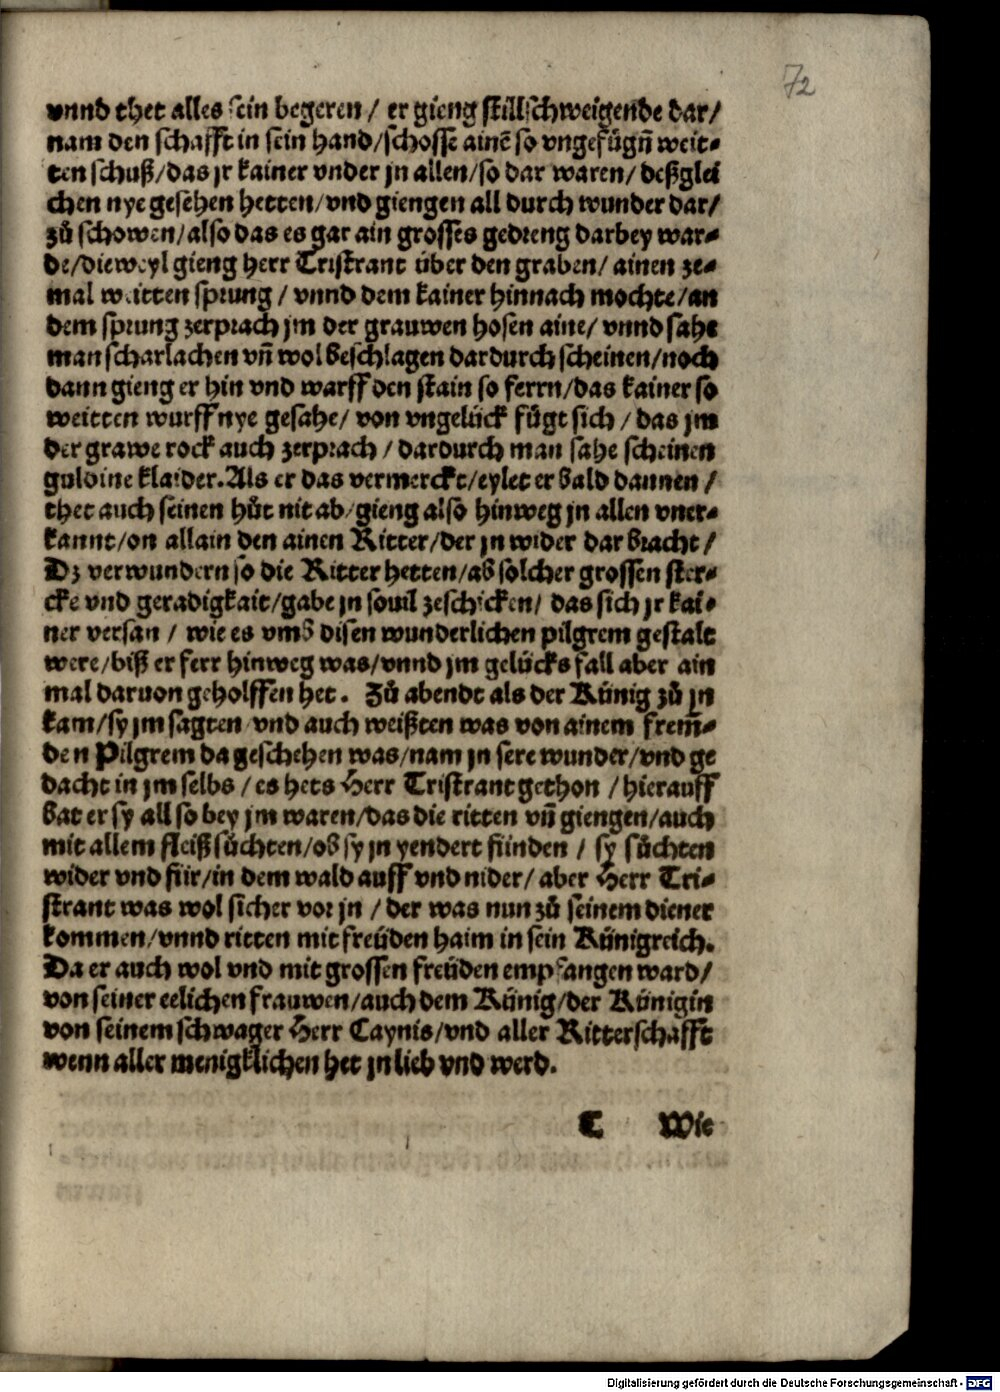 72
vnnd thet alles sein begeren / er gieng stillschweigende dar/
nam den schafft in sein hand/schosse ainē so vngefůgñ weit-
ten schuß/das jr kainer vnder jn allen/so dar waren/ deßglei
chen nye gesehen hetten/vnd giengen all durch wunder dar/
zů schowen/also das es gar ain grosses gedreng darbey war-
de/dieweyl gieng herr Tristrant über den graben/ ainen ze-
mal weitten sprung / vnnd dem kainer hinnach mochte/an
dem sprung zerprach jm der grauwen hosen aine/ vnnd sahe
man scharlachen vñ wol beschlagen dardurch scheinen/noch
dann gieng er hin vnd warff den stain so ferrn/das kainer so
weitten wurff nye gesahe/ von vngelück fůgt sich / das jm
der grawe rock auch zerprach / dardurch man sahe scheinen
guldine klaider. Als er das vermerckt/eylet er bald dannen /
thet auch seinen hůt nit ab/gieng also hinweg jn allen vner-
kannt/on allain den ainen Ritter/der jn wider dar bracht/
Dz verwundern so die Ritter hetten/ab solcher grossen ster-
cke vnd geradigkait/gabe jn souil zeschicken/ das sich jr kai-
ner versan / wie es vmb disen wunderlichen pilgrem gestalt
were/biß er ferr hinweg was/vnnd jm gelücks fall aber ain
mal daruon geholffen het. Zů abendt als der Künig zů jn
kam/sy jm sagten vnd auch weißten was von ainem frem̄-
den Pilgrem da geschehen was/nam jn sere wunder/vnd ge
dacht in jm selbs / es hets Herr Tristrant gethon / hierauff
bat er sy all so bey jm waren/das die ritten vñ giengen/auch
mit allem fleiß sůchten/ob sy jn yendert fünden / sy sůchten
wider vnd für/in dem wald auff vnd nider/ aber Herr Tri-
strant was wol sicher vor jn / der was nun zů seinem diener
kommen/vnnd ritten mit freüden haim in sein Künigreich.
Da er auch wol vnd mit grossen freüden empfangen ward/
von seiner eelichen frauwen/auch dem Künig/der Künigin
von seinem schwager Herr Caynis/vnd aller Ritterschafft
wenn aller menigklichen het jn lieb vnd werd.
T Wie
Digitalisierung gefördert durch die Deutsche Forschungsgemeinschaft - DFG